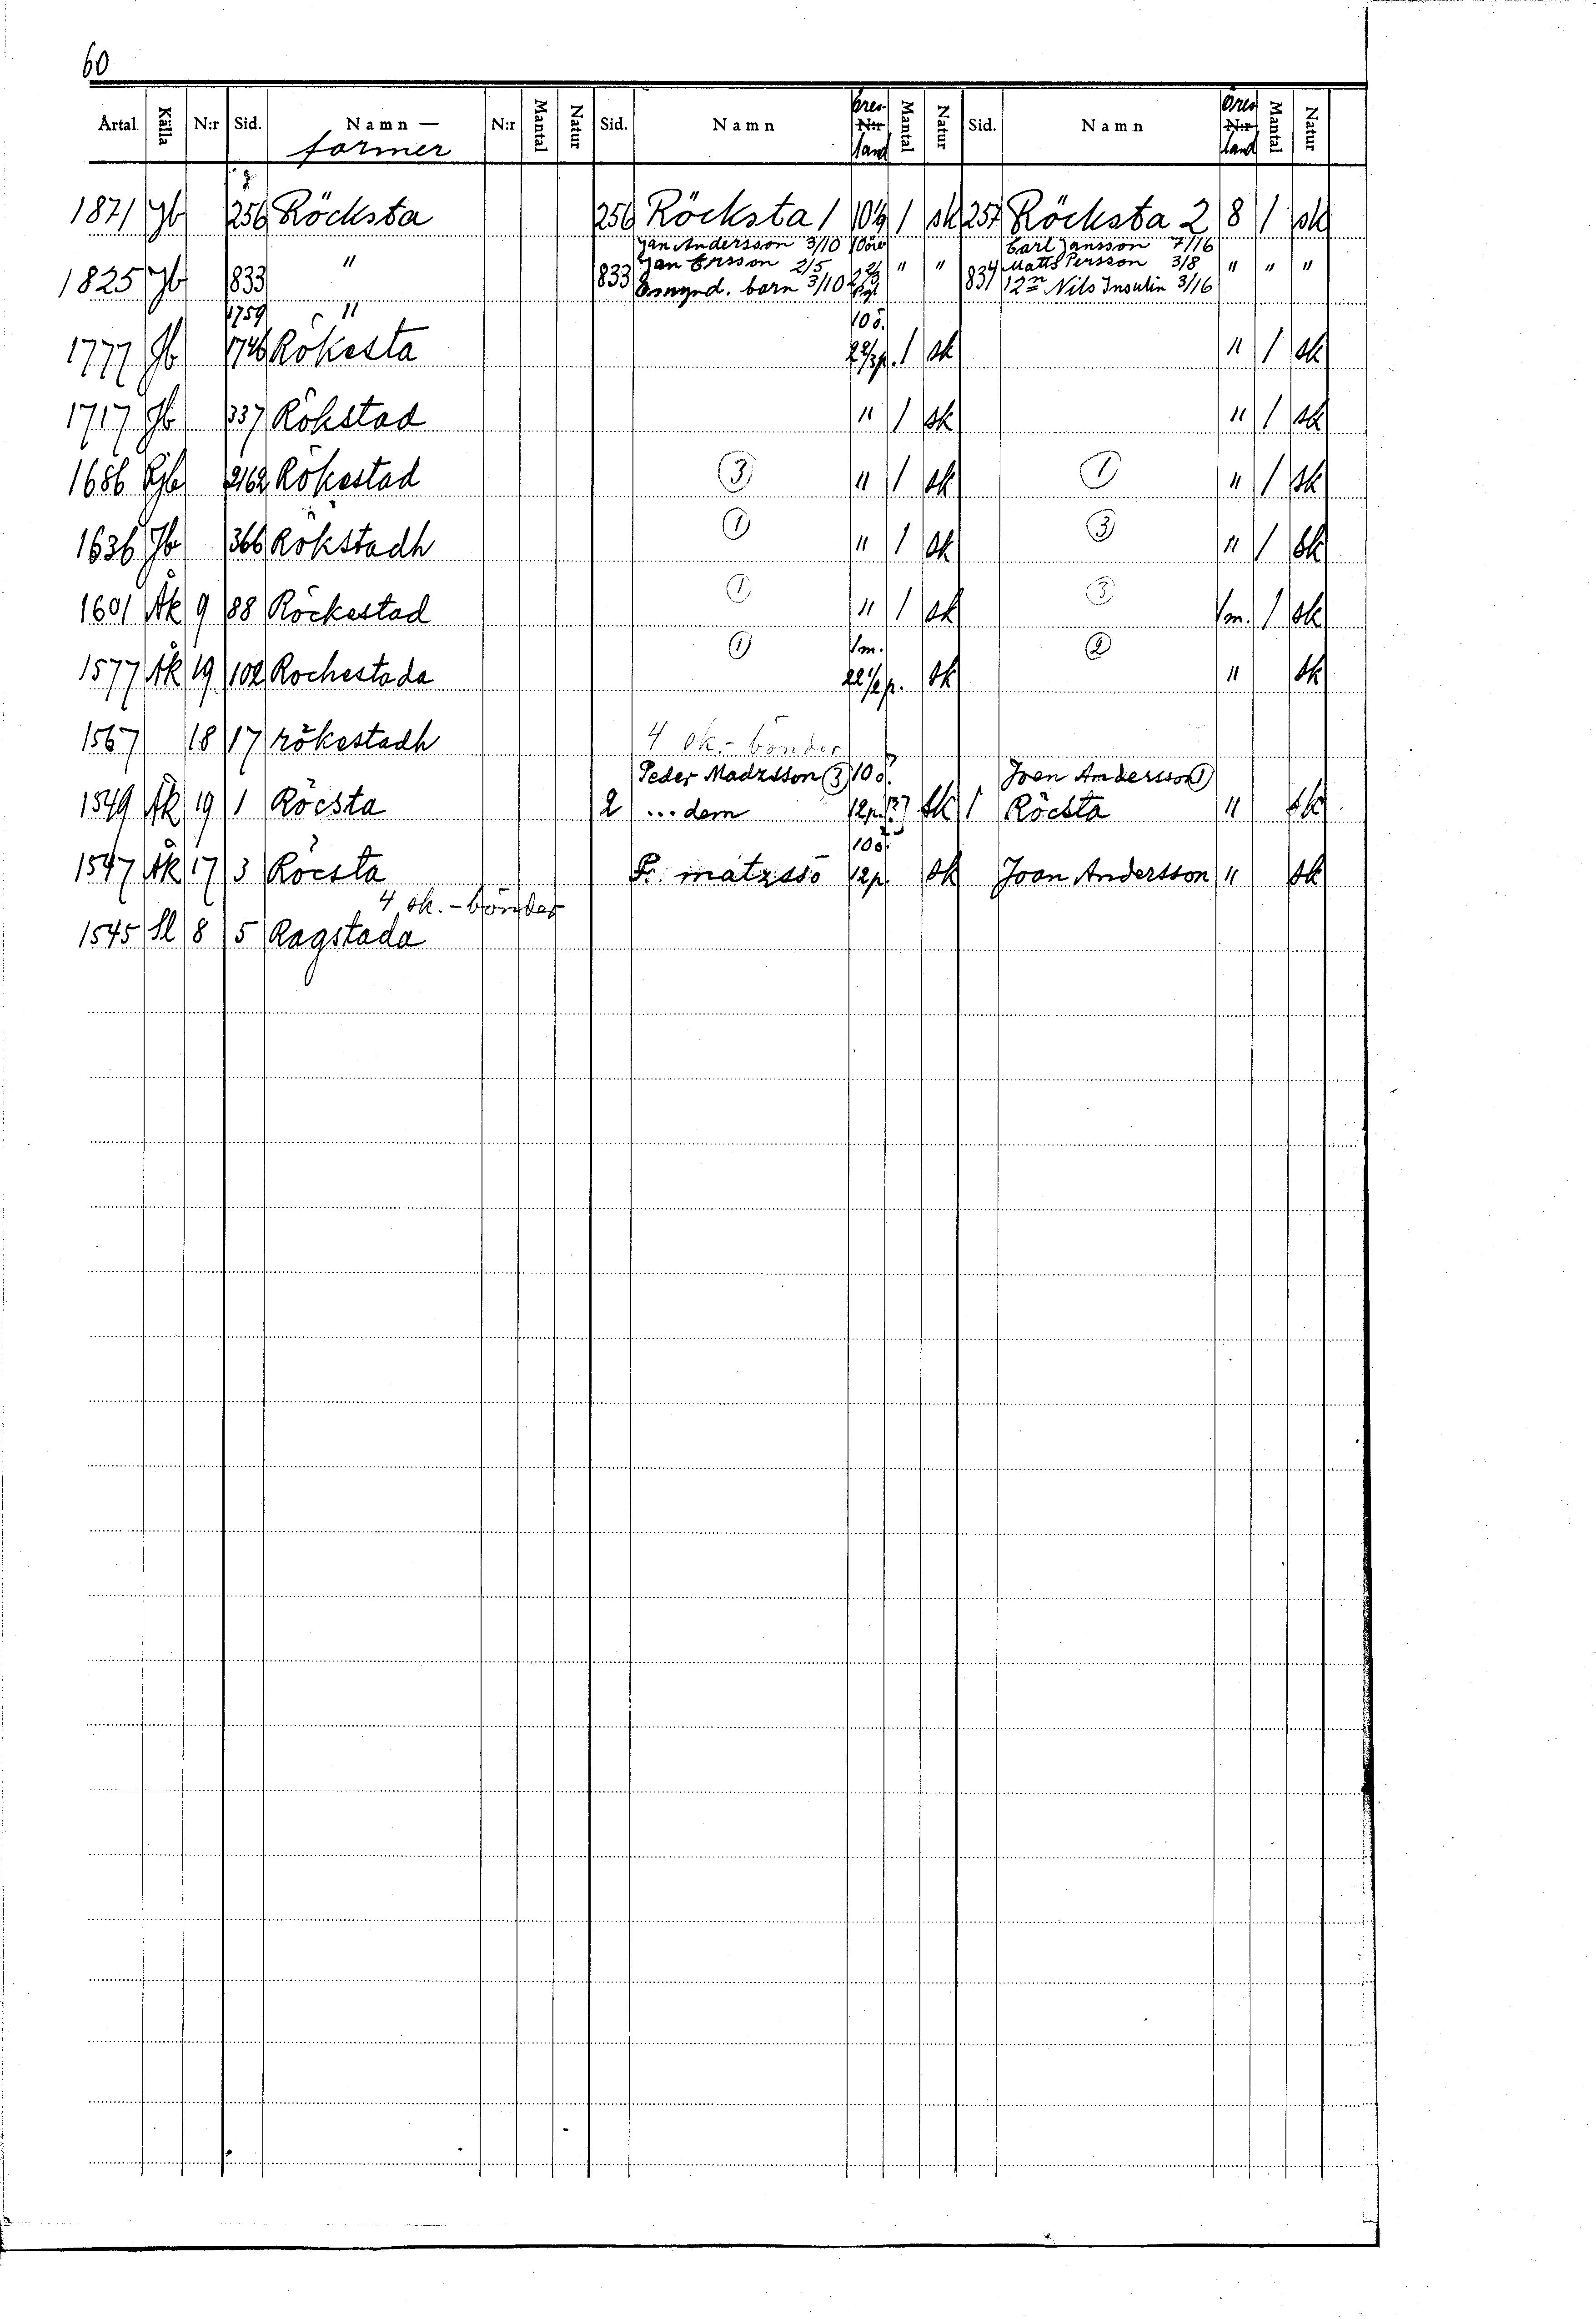 60
Årtal Källa N:r Sid. Namn — former N:r Mantal Natur Sid. Namn Öres- N:r land Mantal Natur Sid. Namn Öres N:r land Mantal Natur
1871 Jb 256 Röcksta 256 Röcksta 1 10 1/9 1 sk 257 Röcksta 2 8 1 sk
Jan Andersson 3/10 10öre Carl Jansson 7/16
1825 Jb 833 " 833 Jan Ersson 2/5 2 2/3 " " 834 Matts Persson 3/8 " " "
Omynd. barn 3/10 pgl 12n Nils Insulin 3/16
1759 " 10ö.
1777 Jb 1746 Rökesta 2 2/3p. 1 sk " 1 sk
1717 Jb 337 Rökstad " 1 sk " 1 sk
1686 Rjb 2162 Rökestad 3 " 1 sk 1 " 1 sk
1636 Jb 366 Rökstadh 1 " 1 sk 3 " 1 sk
1601 Åk 9 88 Röckestad 1 " 1 sk 3 1m. 1 sk
1m.
1577 Åk 19 102 Rochestada 1 22 1/2 p. sk 2 " sk
1567 18 17 rökestadh 4 sk.-bönder
Peder Madzsson 3 10ö. Joen Andersson 1
1549 Åk 19 1 Röcsta 2 ...dem 12p. [?] sk 1 Röcsta " sk
10ö.
1547 Åk 17 3 Röcsta P. matzssō 12p. sk Joan Andersson " sk
4 sk.-bönder
1545 Sl 8 5 Ragstada